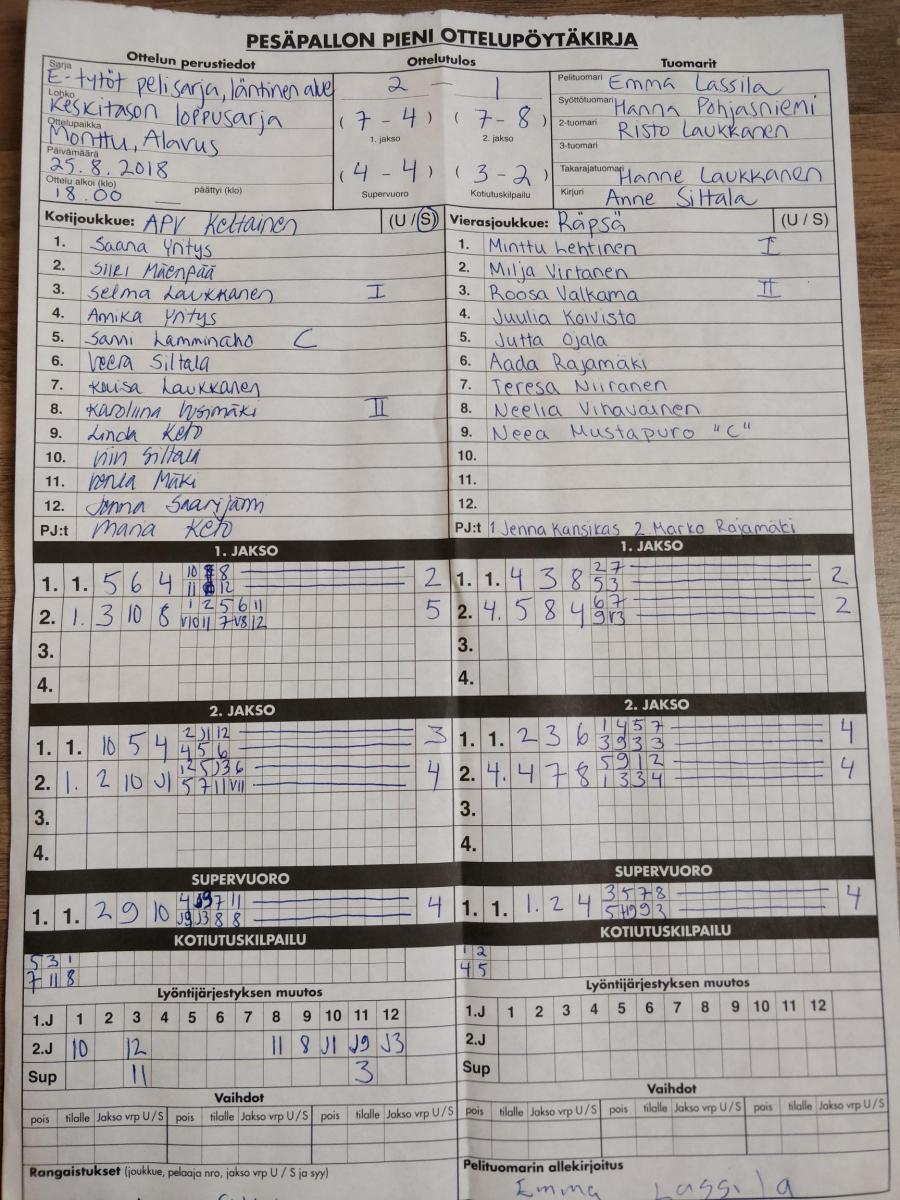 PESÄPALLON PIENI OTTELUPÖYTÄKIRJA
Ottelun perustiedot
Ottelutulos
Tuomarit
Sarja E-tytöt pelisarja, läntinen alue
Lohko Keskitason loppusarja
Ottelupaikka Monttu, Alavus
Päivämäärä 25.8.2018
Ottelu alkoi (klo) 18.00 päättyi (klo)
2 - 1
(7 - 4) (7 - 8)
1. jakso 2. jakso
(4 - 4) (3 - 2)
Supervuoro Kotiutuskilpailu
Pelituomari Emma Lassila
Syöttötuomari Hanna Pohjasniemi
2-tuomari Risto Laukkanen
3-tuomari
Takarajatuomari Hanne Laukkanen
Kirjuri Anne Siltala
Kotijoukkue: APV Keltainen (U / S)
1. Saana Yritys
2. Siiri Mäenpää
3. Selma Laukkanen I
4. Amika Yritys
5. Sanni Lamminaho C
6. Veera Siltala
7. Kaisa Laukkanen
8. Karoliina II
9. Linda Keto
10. Siltala
11. Mäki
12. Jonna Saarijärvi
PJ:t Maria Keto
Vierasjoukkue: Räpsä (U / S)
1. Minttu Lehtinen I
2. Milja Virtanen
3. Roosa Valkama II
4. Juulia Koivisto
5. Jutta Ojala
6. Aada Rajamäki
7. Teresa Niiranen
8. Neelia Vihavainen
9. Neea Mustapuro "C"
10.
11.
12.
PJ:t 1. Jenna Kansikas 2. Marko Rajamäki
1. JAKSO
10 8
1. 1. 5 6 4 11 12 2
1 2 5 6 11
2. 1. 3 10 8 V10 11 7 V8 12 5
3.
4.
1. JAKSO
2 7
1. 1. 4 3 8 5 3 2
6 7
2. 4. 5 8 4 9 V3 2
3.
4.
2. JAKSO
2 J1 12
1. 1. 10 5 4 4 5 6 3
1 2 5 J3 6
2. 1. 2 10 J1 5 7 11 V11 4
3.
4.
2. JAKSO
1 4 5 7
1. 1. 2 3 6 3 9 3 3 4
5 9 1 2
2. 4. 4 7 8 1 3 3 4 4
3.
4.
SUPERVUORO
4 J9 7 11
1. 1. 2 9 10 J9 J3 8 8 4
SUPERVUORO
3 5 7 8
1. 1. 1. 2 4 5 9 3 4
KOTIUTUSKILPAILU
5 3 1
7 11 8
KOTIUTUSKILPAILU
1 2
4 5
Lyöntijärjestyksen muutos
1.J 1 2 3 4 5 6 7 8 9 10 11 12
2.J 10 12 11 8 J1 J9 J3
Sup 11 3
Lyöntijärjestyksen muutos
1.J 1 2 3 4 5 6 7 8 9 10 11 12
2.J
Sup
Vaihdot
pois tilalle Jakso vrp U / S pois tilalle Jakso vrp U / S pois tilalle Jakso vrp U / S
Vaihdot
pois tilalle Jakso vrp U / S pois tilalle Jakso vrp U / S pois tilalle Jakso vrp U / S
Rangaistukset (joukkue, pelaaja nro, jakso vrp U / S ja syy)
Pelituomarin allekirjoitus
Emma Lassila